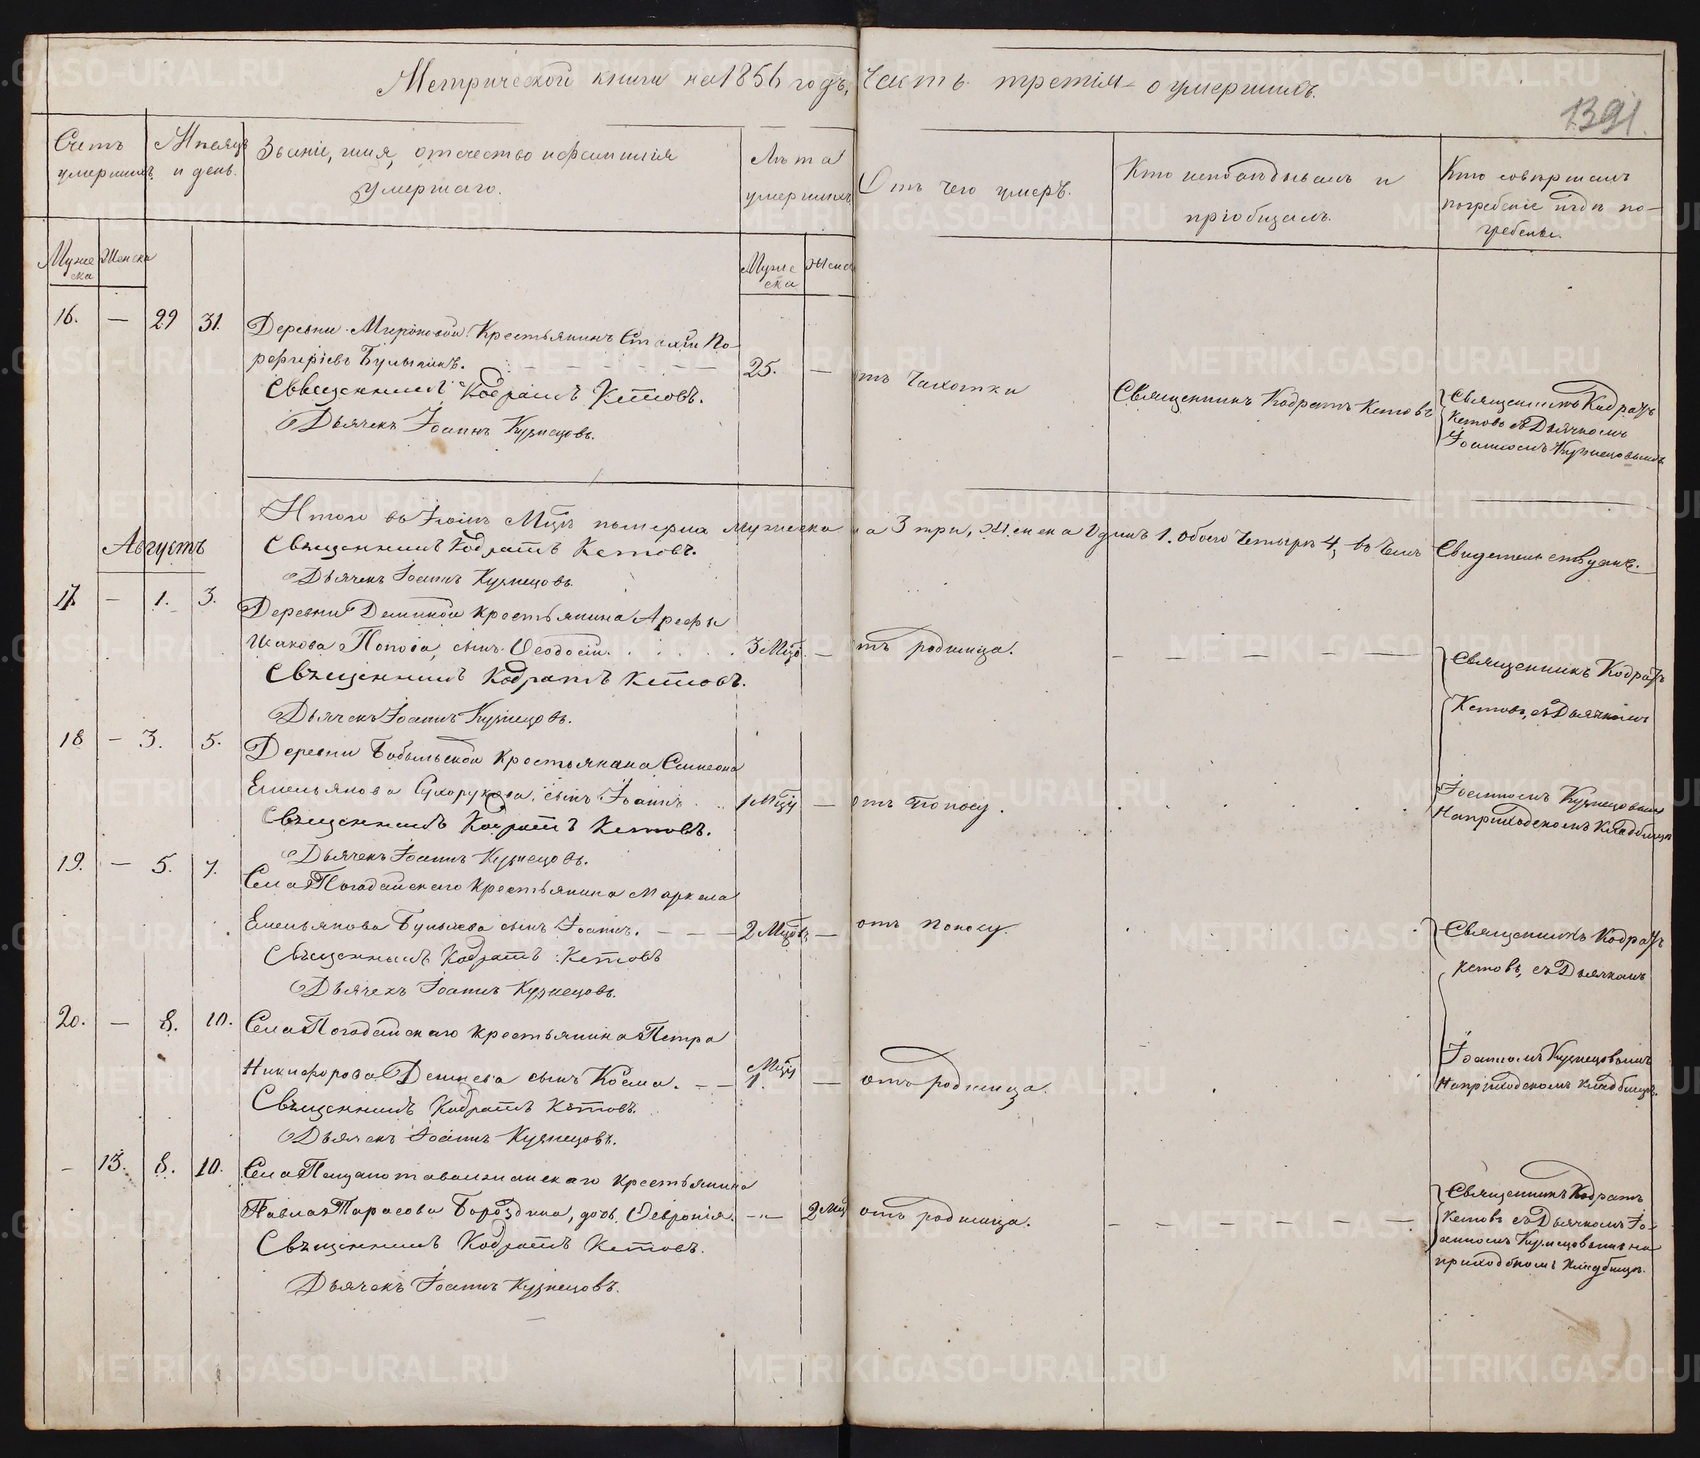 Метрической книги на 1856 годъ, Часть третія о умершихъ.
1391.
Счетъ умершихъ.
Мѣсяцъ и день.
Званіе, имя, отчество и фамилія
умершаго.
Лѣта
умершихъ
Отъ чего умеръ.
Кто исповѣдывалъ и
пріобщалъ.
Кто совершалъ
погребеніе и гдѣ по-
гребены.
Муже
ска
Женска
Муже
ска
Женск
16. — 29 31.
Деревни Мироновой Крестьянинъ
рфиріевъ Булыгинъ. 25. —
отъ Чахотки
Священникъ Кодратъ Кетовъ
Священникъ Кодратъ
Кетовъ съ Дьячкомъ
Іоанномъ Кузнецовымъ
Священникъ Кодратъ Кетовъ.
Дьячекъ Іоаннъ Кузнецовъ.
Итого въ Іюлѣ Мцѣ померло мужеска пола 3 три, Женска Одинъ 1. обоего Четыре 4, въ Чемъ Свидетельствуемъ.
Священникъ Кодратъ Кетовъ.
Дьячекъ Іоаннъ Кузнецовъ.
Августъ
17. — 1. 3.
Деревни Деминой крестьянина Арефы
Исакова Попова, сынъ Ѳеодосій. 3 Мцъ —
отъ родимца.
Священникъ Кодратъ Кетовъ.
Дьячекъ Іоаннъ Кузнецовъ.
Священникъ Кодратъ
Кетовъ, съ Дьячкомъ
18 — 3. 5.
Деревни Бобыльской крестьянина Симеона
Емельянова Сухорукова, сынъ Іоаннъ. 1 Мцъ —
отъ Поносу.
Священникъ Кодратъ Кетовъ.
Дьячекъ Іоаннъ Кузнецовъ.
Іоанномъ Кузнецовымъ
На приходскомъ Кладбищѣ
19. — 5. 7.
Села Погадайскаго крестьянина Маркела
Емельянова Булычева сынъ Іоаннъ. 2 Мцовъ —
отъ Поносу.
Священникъ Кодратъ Кетовъ
Дьячекъ Іоаннъ Кузнецовъ.
Священникъ Кодратъ
Кетовъ, съ Дьячкомъ
20. — 8. 10.
Села Погадайскаго крестьянина Петра
Никифорова Денисова сынъ Косма. Мцъ 1. —
отъ родимца.
Священникъ Кодратъ Кетовъ.
Дьячекъ Іоаннъ Кузнецовъ.
Іоанномъ Кузнецовымъ
На приходскомъ кладбищѣ.
— 13. 8. 10.
Села крестьянина
Павла Тарасова Бороздина, дочь Ѳевронія. 2 Мцъ
отъ родимца.
Священникъ Кодратъ Кетовъ.
Дьячекъ Іоаннъ Кузнецовъ.
Священникъ Кодратъ
Кетовъ съ Дьячкомъ Іо-
анномъ Кузнецовымъ на
приходскомъ кладбищѣ.
METRIKI.GASO-URAL.RU